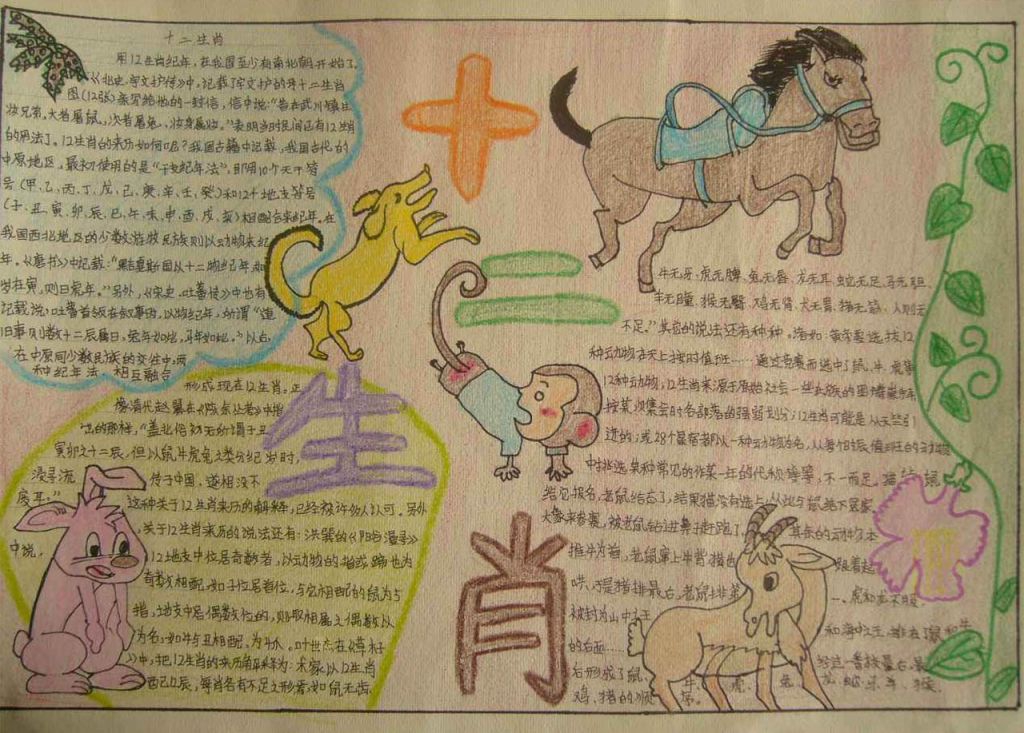 十二生肖
用12生肖纪年，在我国至少有南北朝开始了，
《北史·宇文护传》中，记载了宇文护的母
图(12张)亲写给他的一封信，信中说："昔在武川镇生
汝兄弟，大者属鼠，次者属兔，汝身属蛇。"表明当时民间已有12生肖
的用法了。12生肖的来历如何呢？我国古籍中记载，我国古代的
中原地区，最初使用的是"干支纪年法"，即用10个天干符
号(甲、乙、丙、丁、戊、己、庚、辛、壬、癸)和12个地支符号
(子、丑、寅、卯、辰、巳、午、未、申、酉、戌、亥)相配合来纪年。在
我国西北地区的少数游牧民族则以动物来纪
年。《唐书》中记载："黠戛斯国以十二物纪年，如
岁在寅，则曰虎年。"另外，《宋史·吐蕃传》中也有
记载说，吐蕃首领在叙事时，以物纪年，所谓"道
旧事则数十二辰属曰，兔年如此，马年如此。"以后
在中原同少数民族的交往中，两
种纪年法，相互融合
形成现在12生肖。正
像清代赵翼在《陔余丛考》中指
出的那样，"盖北俗初无所谓子丑
寅卯之十二辰，但以鼠牛虎兔之类分纪岁时，
浸寻流传于中国，遂相沿不
废耳。"
这种关于12生肖来历的解释，已经被许多人认可。另外
关于12生肖来历的说法还有：洪巽的《阳谷漫录》
中说，12地支中位居奇数者，以动物的指或蹄也为
奇数相配，如子位居首位，与它相配的鼠为5
指，地支中居偶数位的，则取相属之偶数以
为名，如牛与丑相配，为4爪。叶世杰在《草木子
》中，把12生肖的来历解释为：术家以12生肖
配12辰，每肖各有不足之形焉，如鼠无齿，
牛无牙，虎无脾，兔无唇，龙无耳，蛇无足，马无胆，
羊无瞳，猴无臀，鸡无肾，犬无胃，猪无筋，人则无
不足。"其它的说法还有种种，诸如：黄帝要选拔12
种动物在天上按时值班……通过竞赛而选中了鼠、牛、虎等
12种动物，12生肖来源于原始社会一些氏族的图腾
按某次集会时各部落的强弱划分；12生肖可能是从天竺引
进的；或28个星宿都以一种动物为名，从
中挑选某种常见的作某一年的代称等等，不一而足。猫
给它报名，老鼠给忘了，结果猫没有选上，从此与鼠
大象来参赛，被老鼠钻进鼻子赶跑了，其余的动物，本
推牛为首，老鼠窜上牛背，猪也跟着起
哄，于是猪排最后。
虎和龙不服，
被封为山中之王和海中之王，排在鼠和牛
的后面。
后形成了鼠、牛、虎、兔、龙、蛇、马、羊、猴、
鸡、猪的顺序。
十
二
生
肖